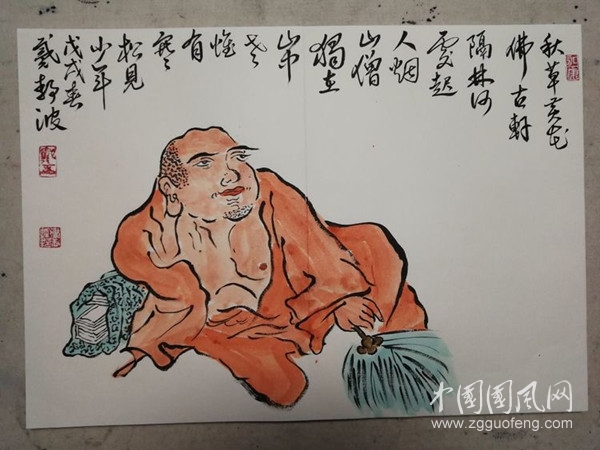 秋草黄花
佛古軒
隔林何
處起
人烟
山僧
獨在
山中
老
惟
有
寒
松見
少年
戊戌春
戴 波
中國國风网
www.zgguofeng.com